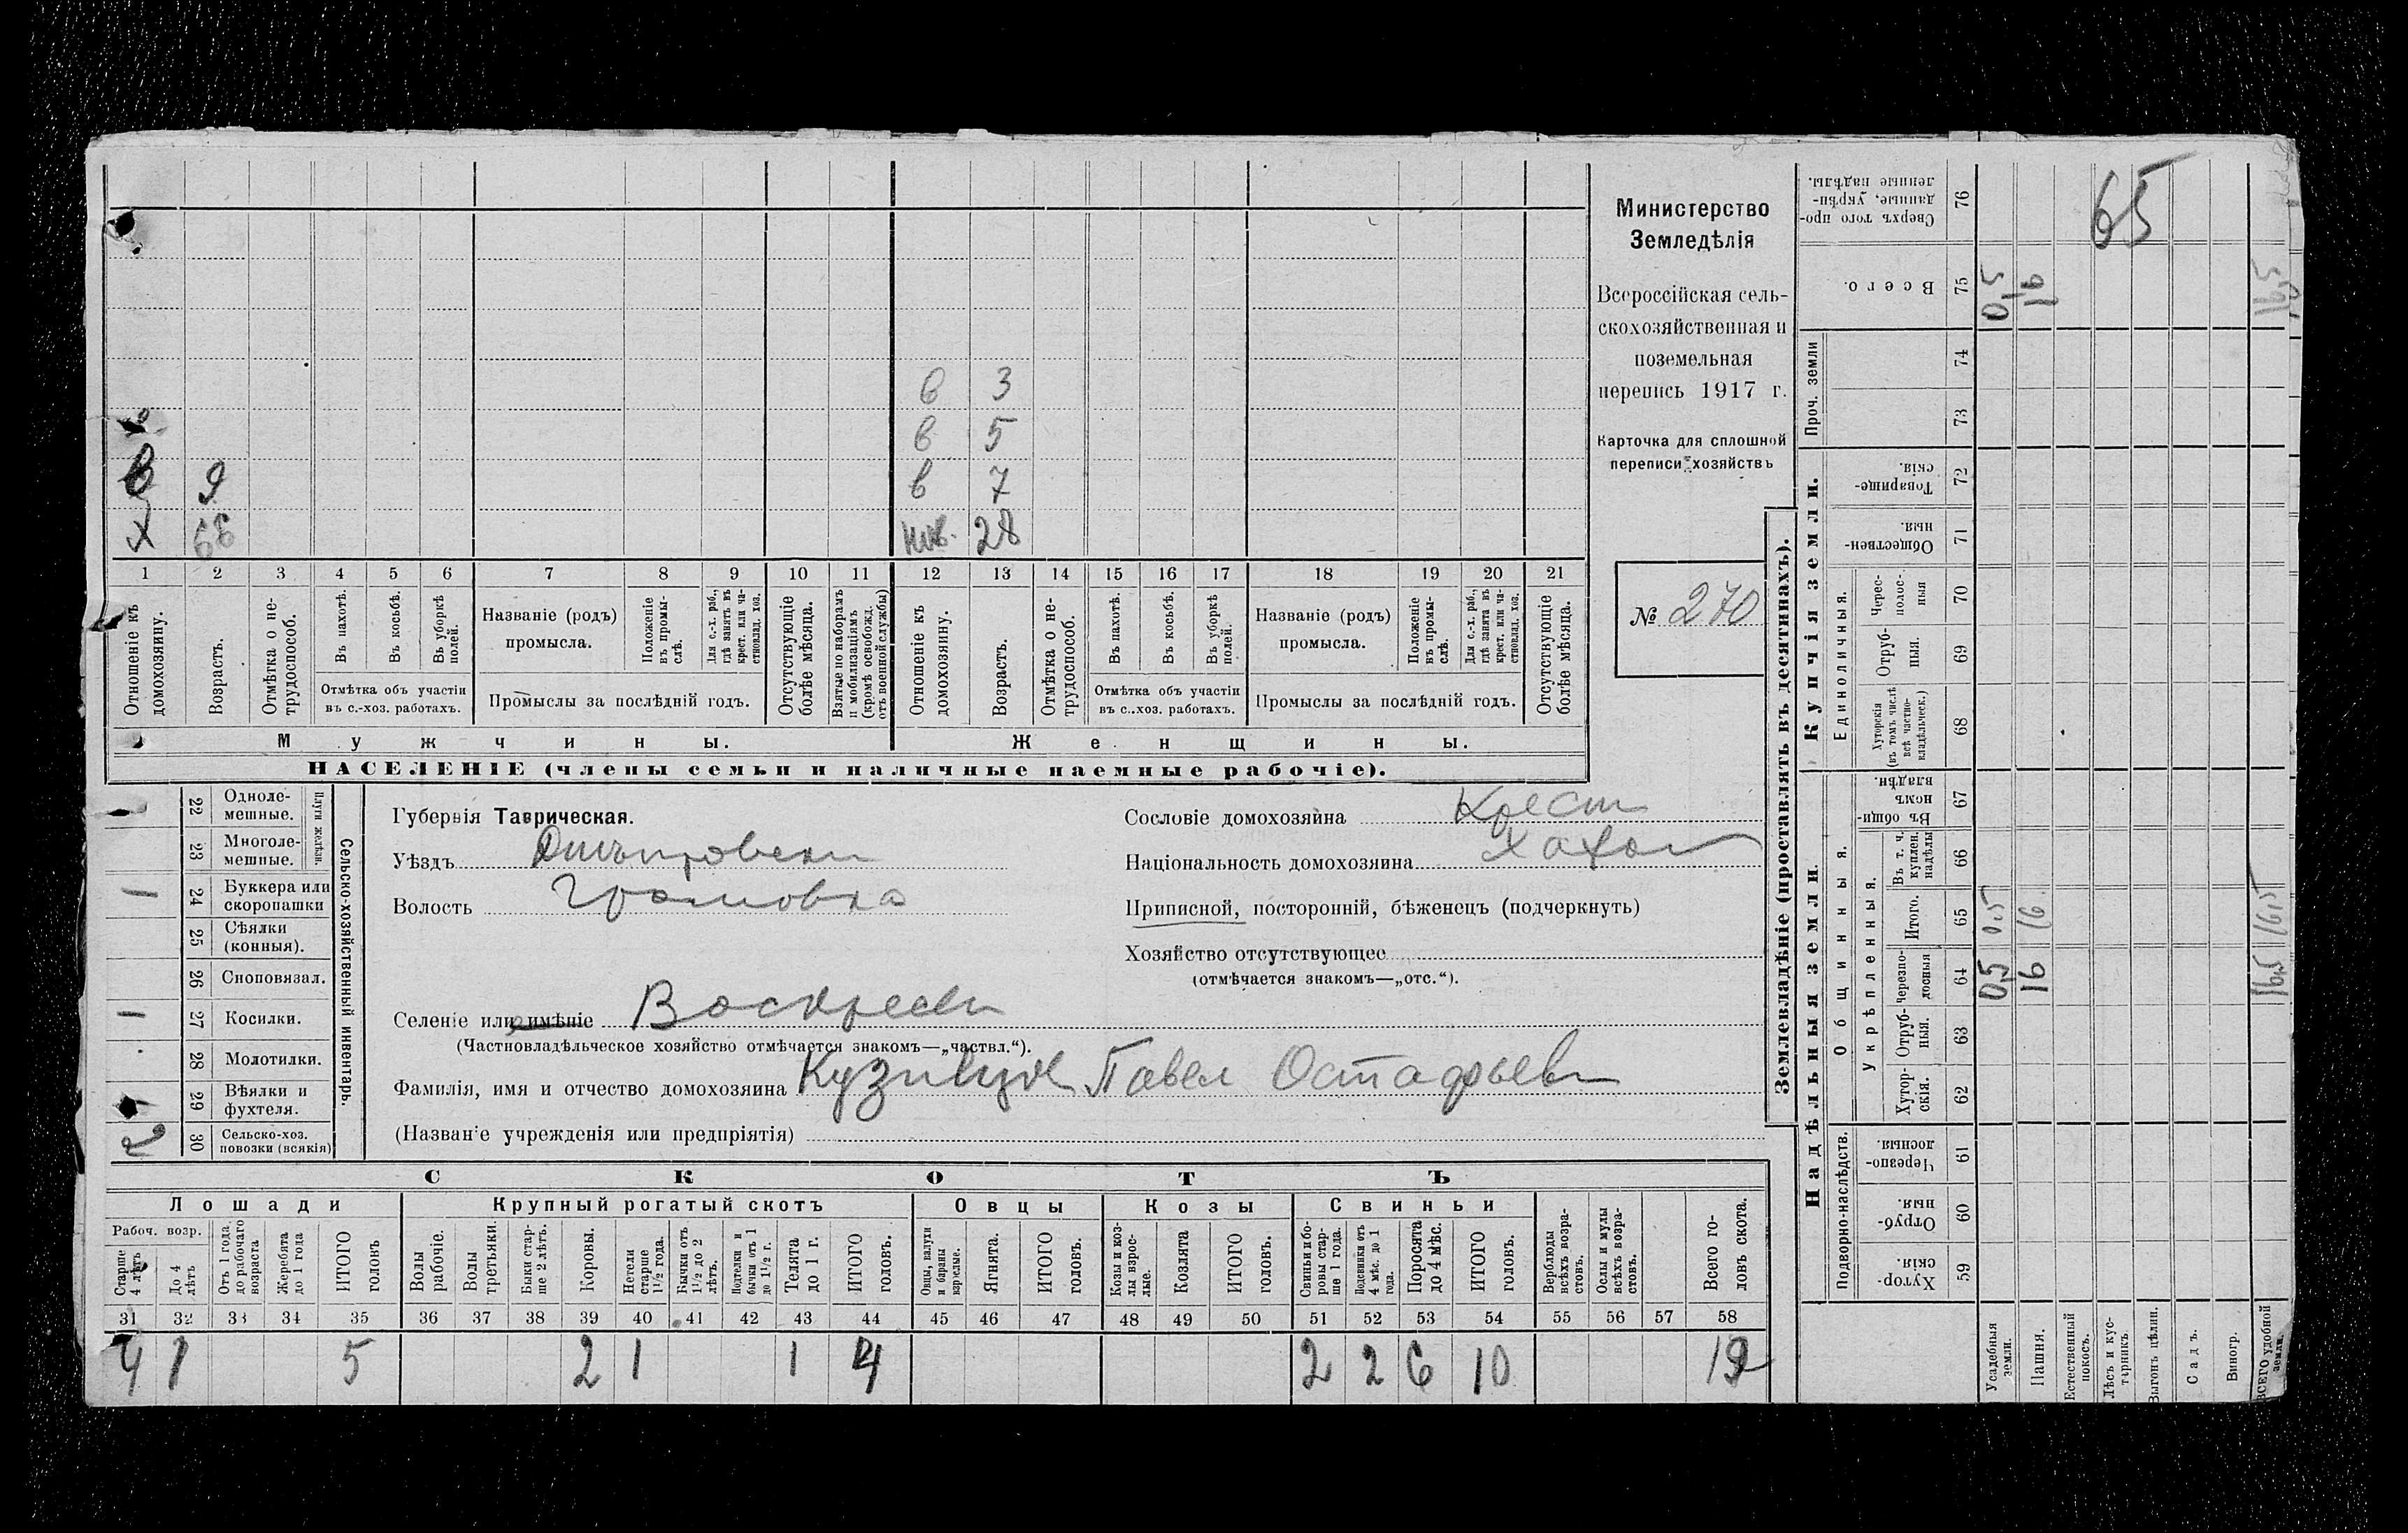 в 3
в 5
в 9 в 7
х 66 нив. 28
1 2 3 4 5 6 7 8 9 10 11 12 13 14 15 16 17 18 19 20 21
Отношеніе къ домохозяину.
Возрастъ.
Отмѣтка о нетрудоспособ.
Въ пахотѣ.
Въ косьбѣ.
Въ уборкѣ полей.
Отмѣтка объ участіи
въ с.-хоз. работахъ.
Названіе (родъ)
промысла.
Положеніе въ промыслѣ.
Для с.-х. раб., гдѣ занятъ въ крест. или частновлад. хоз.
Промыслы за послѣдній годъ.
Отсутствующіе болѣе мѣсяца.
Взятые по наборамъ и мобилизаціямъ (кромѣ освобожд. отъ военной службы)
Отношеніе къ домохозяину.
Возрастъ.
Отмѣтка о нетрудоспособ.
Въ пахотѣ.
Въ косьбѣ.
Въ уборкѣ полей.
Отмѣтка объ участіи
въ с.-хоз. работахъ.
Названіе (родъ)
промысла.
Положеніе въ промыслѣ.
Для с.-х. раб., гдѣ занята въ крест. или частновлад. хоз.
Промыслы за послѣдній годъ.
Отсутствующіе болѣе мѣсяца.
Мужчины.
Женщины.
НАСЕЛЕНІЕ (члены семьи и наличные наемные рабочіе).
Министерство
Земледѣлія
Всероссійская сель-
скохозяйственная и
поземельная
перепись 1917 г.
Карточка для сплошной
переписи хозяйствъ
№ 270
22 Одноле-
мешные.
23 Многоле-
мешные.
Плуги желѣзн.
24 Буккера или
скоропашки
25 Сѣялки
(конныя).
26 Сноповязал.
27 Косилки.
28 Молотилки.
29 Вѣялки и
фухтеля.
2 30 Сельско-хоз.
повозки (всякія)
Сельско-хозяйственный инвентарь.
Губернія Таврическая.
Уѣздъ Днѣпровски
Волость Громовка
Селеніе или имѣніе Воскресен
(Частновладѣльческое хозяйство отмѣчается знакомъ—„частвл.“).
Фамилія, имя и отчество домохозяина Павел Остафьев
(Названіе учрежденія или предпріятія)
Сословіе домохозяина Крест
Національность домохозяина Хохол
Приписной, посторонній, бѣженецъ (подчеркнуть)
Хозяйство отсутствующее
(отмѣчается знакомъ—„отс.“).
СКОТЪ
Лошади
Крупный рогатый скотъ
Овцы
Козы
Свиньи
Рабоч. возр.
Старше 4 лѣтъ
До 4 лѣтъ
Отъ 1 года до рабочаго возраста
Жеребята до 1 года
ИТОГО головъ
Волы рабочіе.
Волы третьяки.
Быки старше 2 лѣтъ.
Коровы.
Нетели старше 1½ года.
Бычки отъ 1½ до 2 лѣтъ.
Подтелки и бычки отъ 1 до 1½ г.
Телята до 1 г.
ИТОГО головъ.
Овцы, валухи и бараны взрослые.
Ягнята.
ИТОГО головъ.
Козы и козлы взрослые.
Козлята
ИТОГО головъ.
Свиньи и боровы старше 1 года.
Подсвинки отъ 4 мѣс. до 1 года.
Поросята до 4 мѣс.
ИТОГО головъ.
Верблюды всѣхъ возрастовъ.
Ослы и мулы всѣхъ возрастовъ.
Всего головъ скота.
31 32 33 34 35 36 37 38 39 40 41 42 43 44 45 46 47 48 49 50 51 52 53 54 55 56 57 58
4 1 5 2 1 1 4 2 2 6 10 19
Землевладѣніе (проставлять въ десятинахъ).
Надѣльныя земли.
Купчія земли.
Проч. земли
Подворно-наслѣдств.
Общинныя.
Укрѣпленныя.
Единоличныя.
Хутор-
скія.
59
Отруб-
ныя.
60
Черезпо-
лосныя.
61
Хутор-
скія.
62
Отруб-
ныя.
63
Черезпо-
лосныя
64
Итого.
65
Въ т. ч.
куплен.
надѣлы
66
Въ общин-
номъ
владѣн.
67
Хуторскія
(въ томъ числѣ
всѣ частно-
владѣльческ.)
68
Отруб-
ныя.
69
Черес-
полос-
ныя
70
Обществен-
ныя.
71
Товарище-
скія.
72
73
74
Всего.
75
Сверхъ того про-
данные, укрѣп-
ленные надѣлы.
76
Усадебныя земли. 0,5 0,5 0,5
Пашня. 16 16 16
Естественный покосъ.
Лѣсъ и кустарникъ.
Выгонъ цѣлин.
Садъ.
Виногр.
ВСЕГО удобной земли. 16,5 16,5 16,5
65